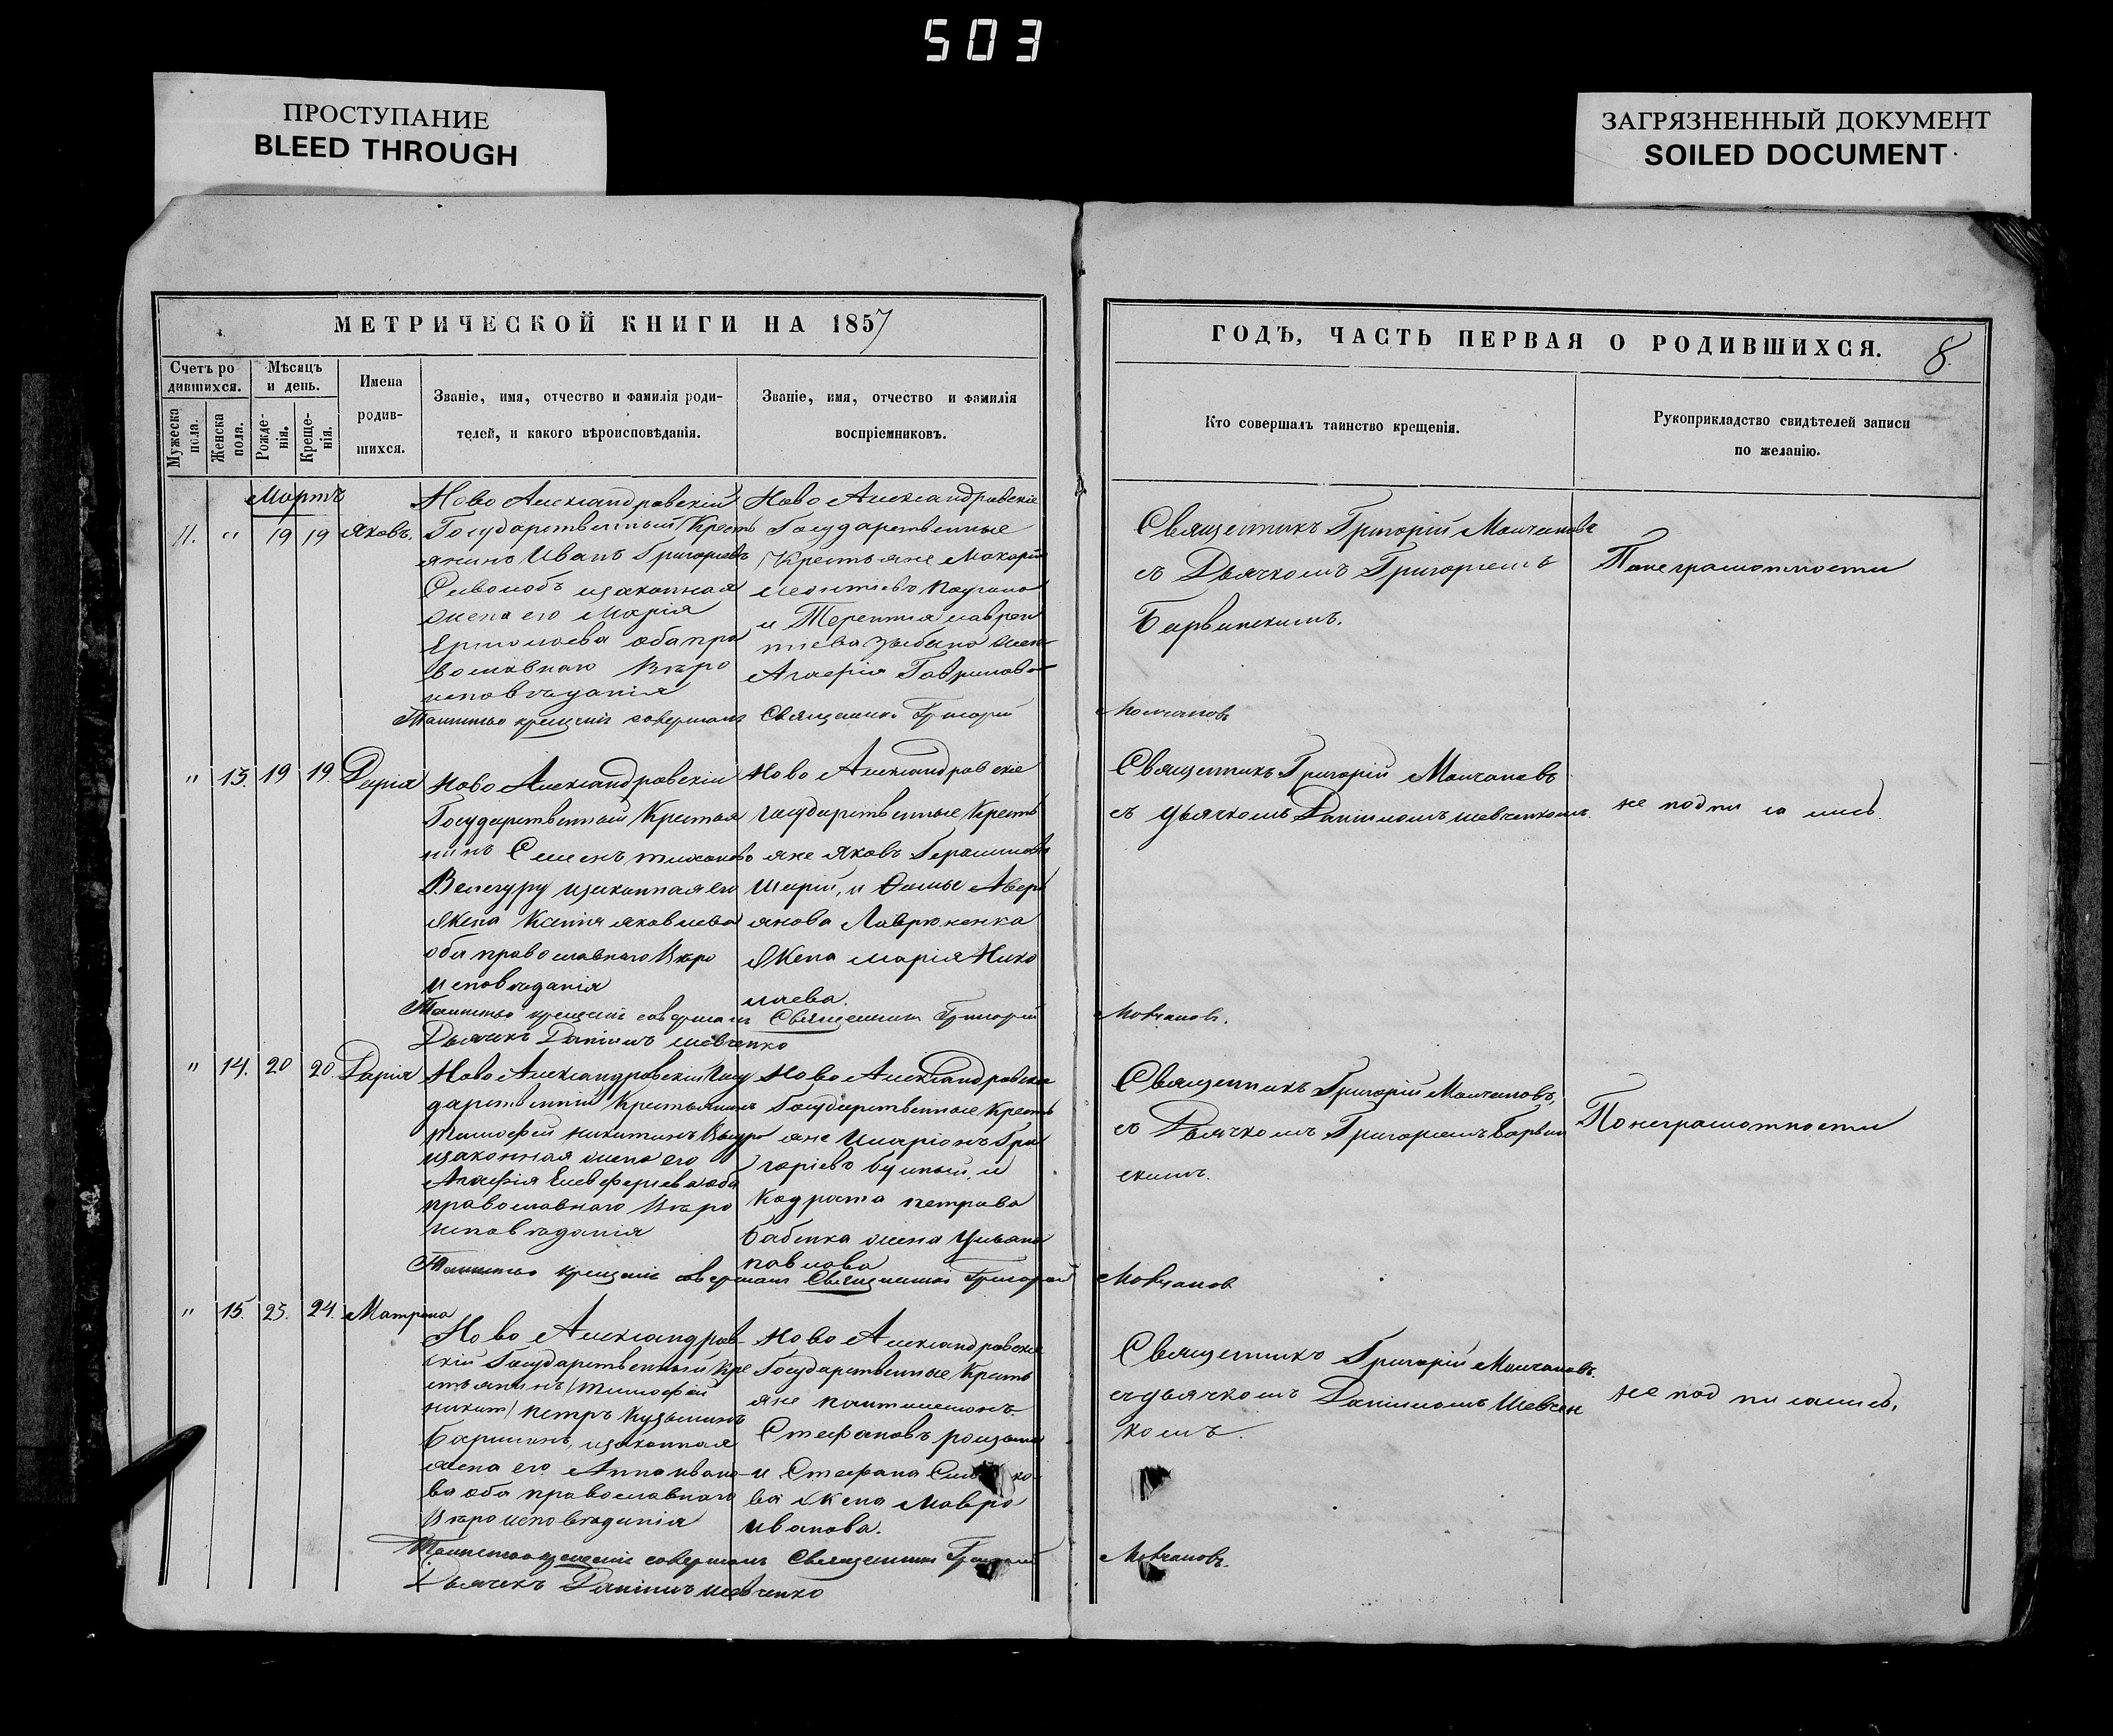 503
ПРОСТУПАНИЕ
BLEED THROUGH
ЗАГРЯЗНЕННЫЙ ДОКУМЕНТ
SOILED DOCUMENT
МЕТРИЧЕСКОЙ КНИГИ НА 1857
Счетъ ро
дившихся.
Мужеска
пола.
Женска
пола.
Мѣсяцъ
и день.
Рожде-
нія.
Креще-
нія.
Имена
родив-
шихся.
Званіе, имя, отчество и фамилія роди-
телей, и какого вѣроисповѣданія.
Званіе, имя, отчество и фамилія
воспріемниковъ.
Мартъ
11. " 19 19 Яковъ.
Ново Александровскій
Государственный Кресть
янинъ Иванъ Григорьевъ
изаконная
жена его Марія
Ермолаева оба пра
вославнаго Вѣро
исповѣданія
Ново Александровскіе
Государственные
Крестьяне Макарій
Леонтіевъ
и Терентія Лаврен
тіева жена
Агафія Гаврилова
Таинство крещенія совершалъ Священникъ Григорій
" 13. 19 19. Дарія
Ново Александровскій
Государственный Крестья
нинъ Семенъ Тихоновъ
изаконная его
Жена Ксенія Яковлева
оба православнаго Вѣро
исповѣданія
Ново Александровскіе
Государственные Кресть
яне Яковъ Герасимовъ
Шарій, и Фомы Авері
янова Лаврюненка
Жена Марія Нико
лаева.
Таинство крещенія совершалъ Священникъ Григорій
Дьячекъ Даніилъ Шевченко
" 14. 20 20. Дарія
Ново Александровскій Госу
дарственній Крестьянинъ
Тимофей Никитинъ
изаконная жена его
Агафія Елевферіева оба
православнаго Вѣро
исповѣданія
Ново Александровскіе
Государственные Кресть
яне Иларіонъ Гри
горіевъ и
Кодрата Петрова
Бабенка жена Ульяна
Павлова
Таинство крещенія совершалъ Священникъ Григорій
" 15. 23. 24. Матрона
Ново Александров-
скій Государственный Кре
стьянинъ /Тимофей
Никит/ Петръ Кузьминъ
изаконная
жена его Анна Ивано-
ва оба православнаго
Вѣроисповѣданія
Ново Александровскіе
Государственные Кресть
яне Пантилемонъ
Стефановъ
и Стефана
ва Жена Мавра
Иванова.
Таинство крещеніе совершалъ Священникъ Григорій
Дьячекъ Даніилъ Шевченко
ГОДЪ, ЧАСТЬ ПЕРВАЯ О РОДИВШИХСЯ.
8.
Кто совершалъ таинство крещенія.
Рукоприкладство свидѣтелей записи
по желанію.
Священникъ Григорій Молчановъ
съ Дьячкомъ Григоріемъ
Барвинскимъ.
Понеграмотности
Молчановъ
Священникъ Григорій Молчановъ
съ дьячкомъ Даніиломъ Шевченкомъ.
не подписались.
Молчановъ.
Священникъ Григорій Молчановъ,
съ Дьячкомъ Григоріемъ Барвин
скимъ.
Понеграмотности
Молчанов
Священникъ Григорій Молчановъ.
съ дьячкомъ Даніиломъ Шевчен
комъ.
не подписались.
Молчановъ.